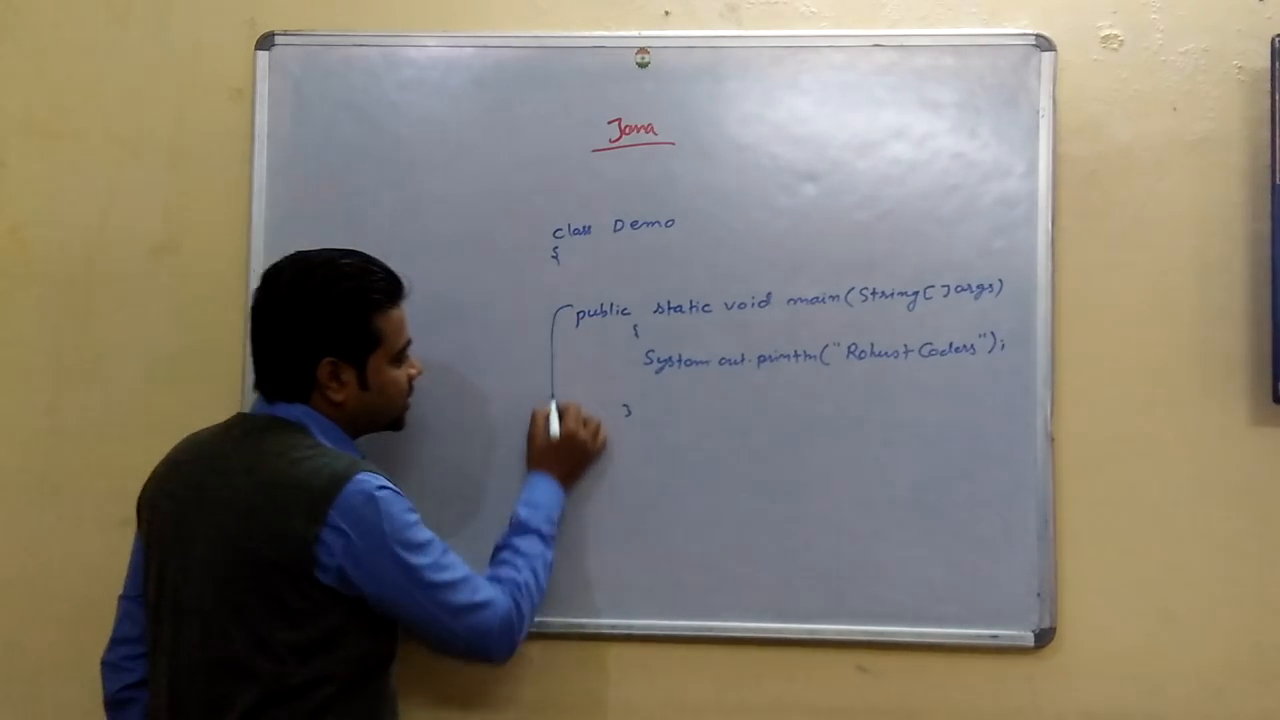 Java
class Demo
{
public static void main(String[]args)
{
System.out.println("Robust Coders");
}